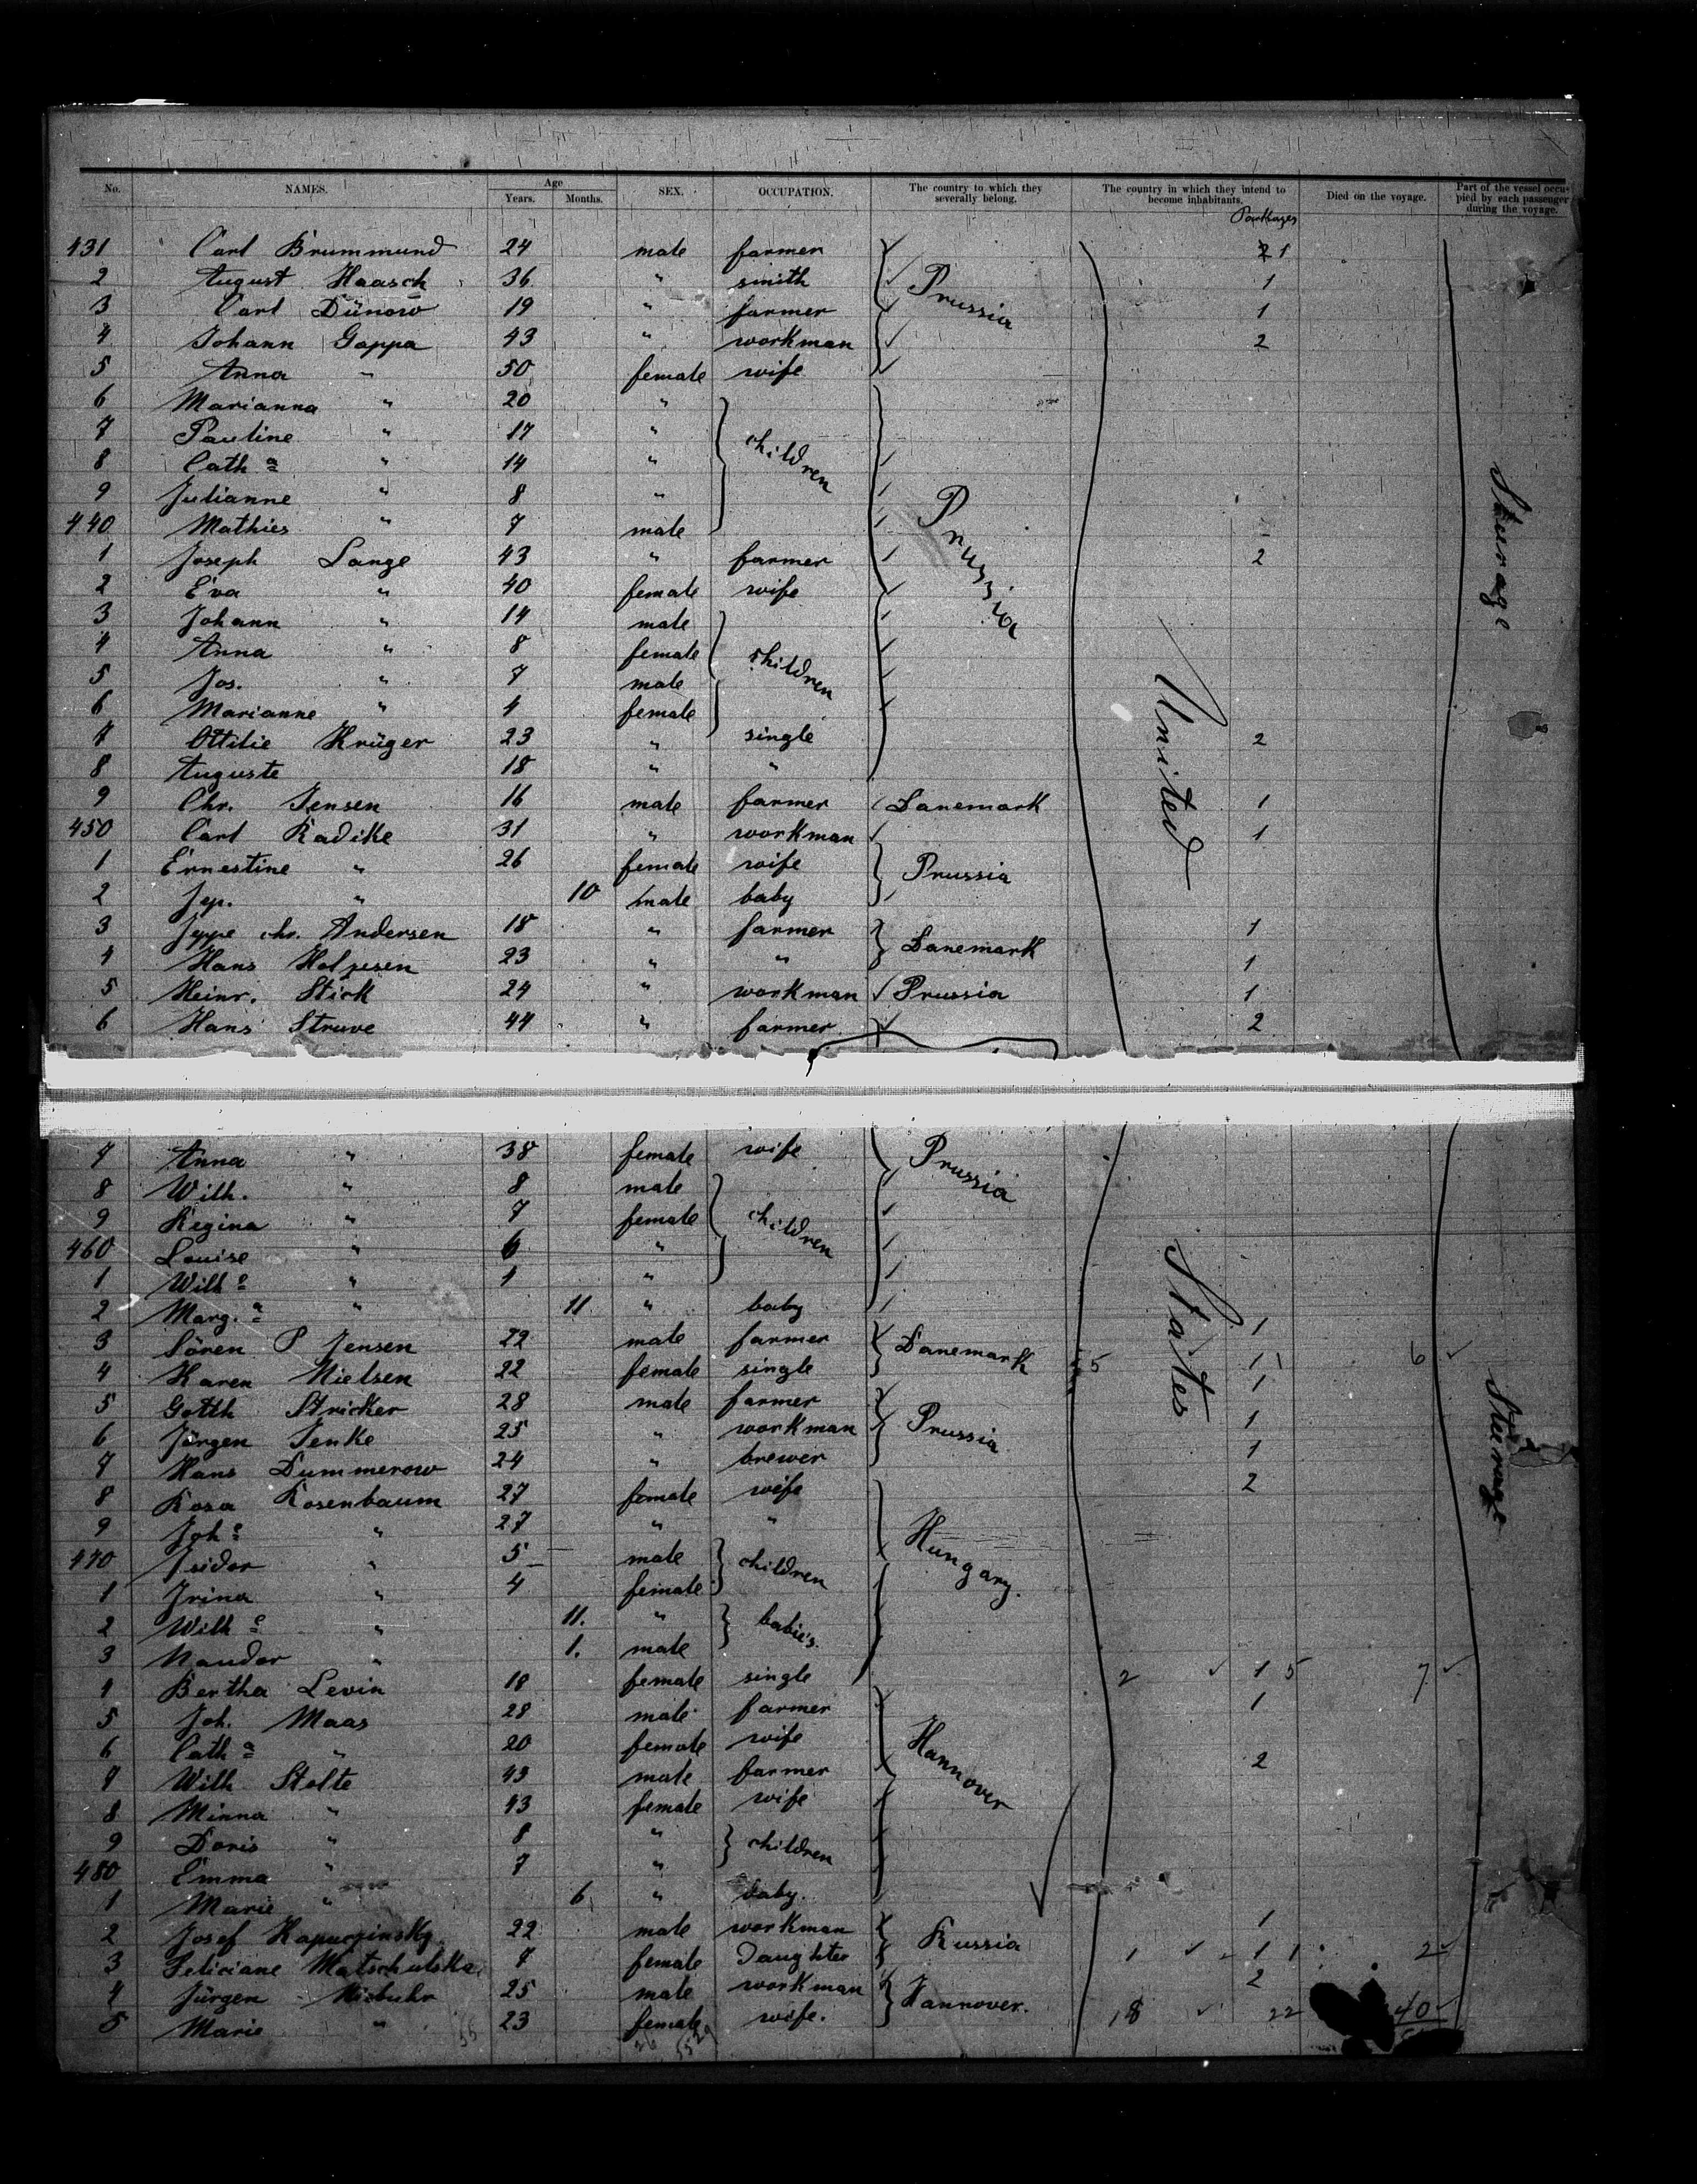 No. NAMES. Age Years. Months. SEX. OCCUPATION. The country to which they severally belong. The country in which they intend to become inhabitants. Died on the voyage. Part of the vessel occupied by each passenger during the voyage.
431 Carl Brummund 24 male farmer 1
2 August Haasch 36 " smith Prussia 1
3 Carl Dünow 19 " farmer 1
4 Johann Gappa 43 " workman 2
5 Anna " 50 female wife
6 Marianna " 20 "
7 Pauline " 17 " children
8 Cath a " 14 "
9 Julianne " 8 " Prussia Steerage
440 Mathies " 7 male
1 Joseph Lange 43 " farmer 2
2 Eva " 40 female wife
3 Johann " 14 male
4 Anna " 8 female children
5 Jos. " 7 male
6 Marianne " 4 female United
7 Ottilie Krüger 23 " single 2
8 Auguste 18 " "
9 Chr. Jensen 16 male farmer Danemark 1
450 Carl Radike 31 " workman 1
1 Ernestine " 26 female wife Prussia
2 Jep. " 10 male baby
3 Jeppe chr. Andersen 18 " farmer Danemark 1
4 Hans 23 " " 1
5 Heinr. Stick 24 " workman Prussia 1
6 Hans Struve 44 " farmer 2
7 Anna " 38 female wife Prussia
8 Wilh. " 8 male
9 Regina " 7 female children
460 Louise " 6 "
1 Wilh e " 4 " States
2 Marg. a " 11 " baby
3 Sören P Jensen 22 male farmer Danemark 1
4 Karen Nielsen 22 female single 5 1 1 6
5 Gotth Stricker 28 male farmer Prussia 1 Steerage
6 Jörgen Jenke 25 " workman 1
7 Hans Dummerow 24 " brewer 1
8 Rosa Rosenbaum 27 female wife 2
9 Joh e " 27 " " Hungary.
470 Isidor " 5 male children
1 Irina " 4 female
2 Wilh e " 11. " babies
3 Nandor " 1. male
4 Bertha Levin 18 female single 2 1 5 7
5 Joh. Maas 28 male farmer Hannover 1
6 Cath a " 20 female wife
7 Wilh Stolte 43 male farmer 2
8 Minna " 43 female wife
9 Doris " 8 " children
480 Emma " 7 "
1 Marie " 6 " baby.
2 Josef 22 male workman Russia 1
3 Feliciane Matschulska 7 female Daughter 1 1 1 2
4 Jürgen Niebuhr 25 male workman Hannover. 2
5 Marie " 23 female wife. 18 22 40